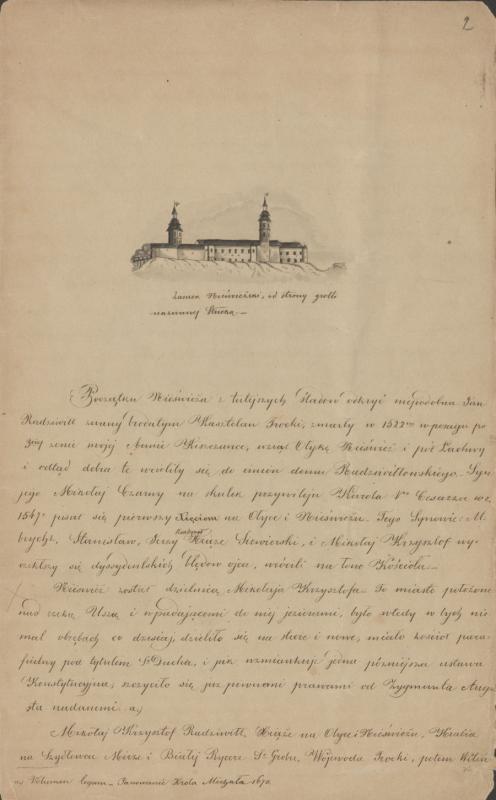 2
Zamek Nieświeżski, od strony grobli
nazwanej Słucką.—
Początku Nieświeża z tutejszych śladów odkryć niepodobna Jan
Radziwiłł zwany brodatym Kasztelan Trocki, zmarły w 1522 im w posagu po
żonie swojej Annie Kiszczance, wziął Ołykę Nieśwież i pół Lachwy
i odtąd dobra te weszły się do imion domu Radziwiłłowskiego. Syn
jego Mikołaj Czarny na skutek przywileju Karola V go Cesarza w r.
1547 pisał się pierwszy Xięciem na Ołyce i Nieświeżu. Tego Synowie: M
Stanisław, Jerzy Kardynał Xiąże Siewierski, i Mikołaj Krzysztof wy
rzekłszy się dyssydentskich błędów ojca, wrócili na łono Kościoła.—
Nieśwież został dzielnicą Mikołaja Krzysztofa. To miasto położone
nad rzeką Uszą i wpadającemi do niej jeziorami, było wtedy w tych nie
mal obrębach co dzisiaj, dzieliło się na stare i nowe, miało kościół para
fialny pod tytułem S. Ducha, i jak wzmiankuje jedna późniejsza ustawa
Konstytucyjna, szczyciło się już pewnemi prawami od Zygmunta Augu
sta nadanemi. a)
Mikołaj Krzysztof Radziwiłł, Xiąże na Ołyce i Nieświeżu, Hrabia
na Szydłowcu Mirze i Białej Rycerz S. Grobu, Wojewoda Trocki, potem Wileń
a) Volumen legum — Panowanie Króla Michała 1670.